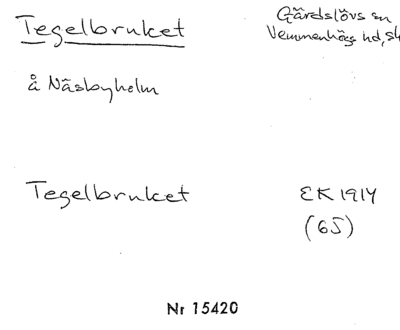 Tegelbruket
Gärdslövs sn
Vemmenhögs hd, Sk
å Näsbyholm
Tegelbruket
EK 1914
(65)
Nr 15420